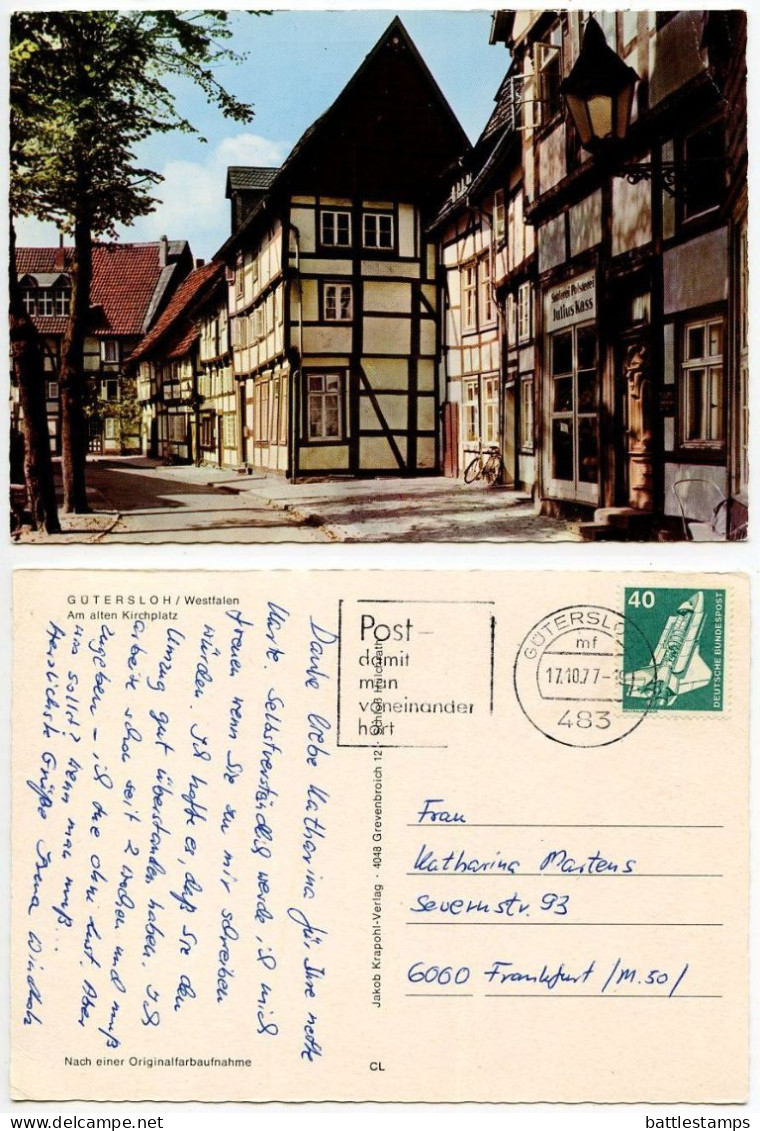 Sattlerei Polsterei
Julius Kass
GÜTERSLOH / Westfalen
Am alten Kirchplatz
Danke liebe Katharina für Ihre nette
Karte. Selbstverständlich werde ich mich
freuen wenn Sie zu mir schreiben
würden. Ich hoffe es, daß Sie den
Umzug gut überstanden haben. Ich
arbeite schon seit 2 Wochen und muß
zugeben – ich tue ohne Lust. Aber
was sollst? Wenn man muß...
Herzlichste Grüße Irena
Nach einer Originalfarbaufnahme
CL
Jakob Krapohl-Verlag · 4048 Grevenbroich 12 · Schloß
Post –
damit
man
voneinander
hört
GÜTERSLOH
mf
17.10.77
483
40
DEUTSCHE BUNDESPOST
Frau
Katharina Martens
Severnstr. 93
6000 Frankfurt /M.50/
battlestamps
battlestamps